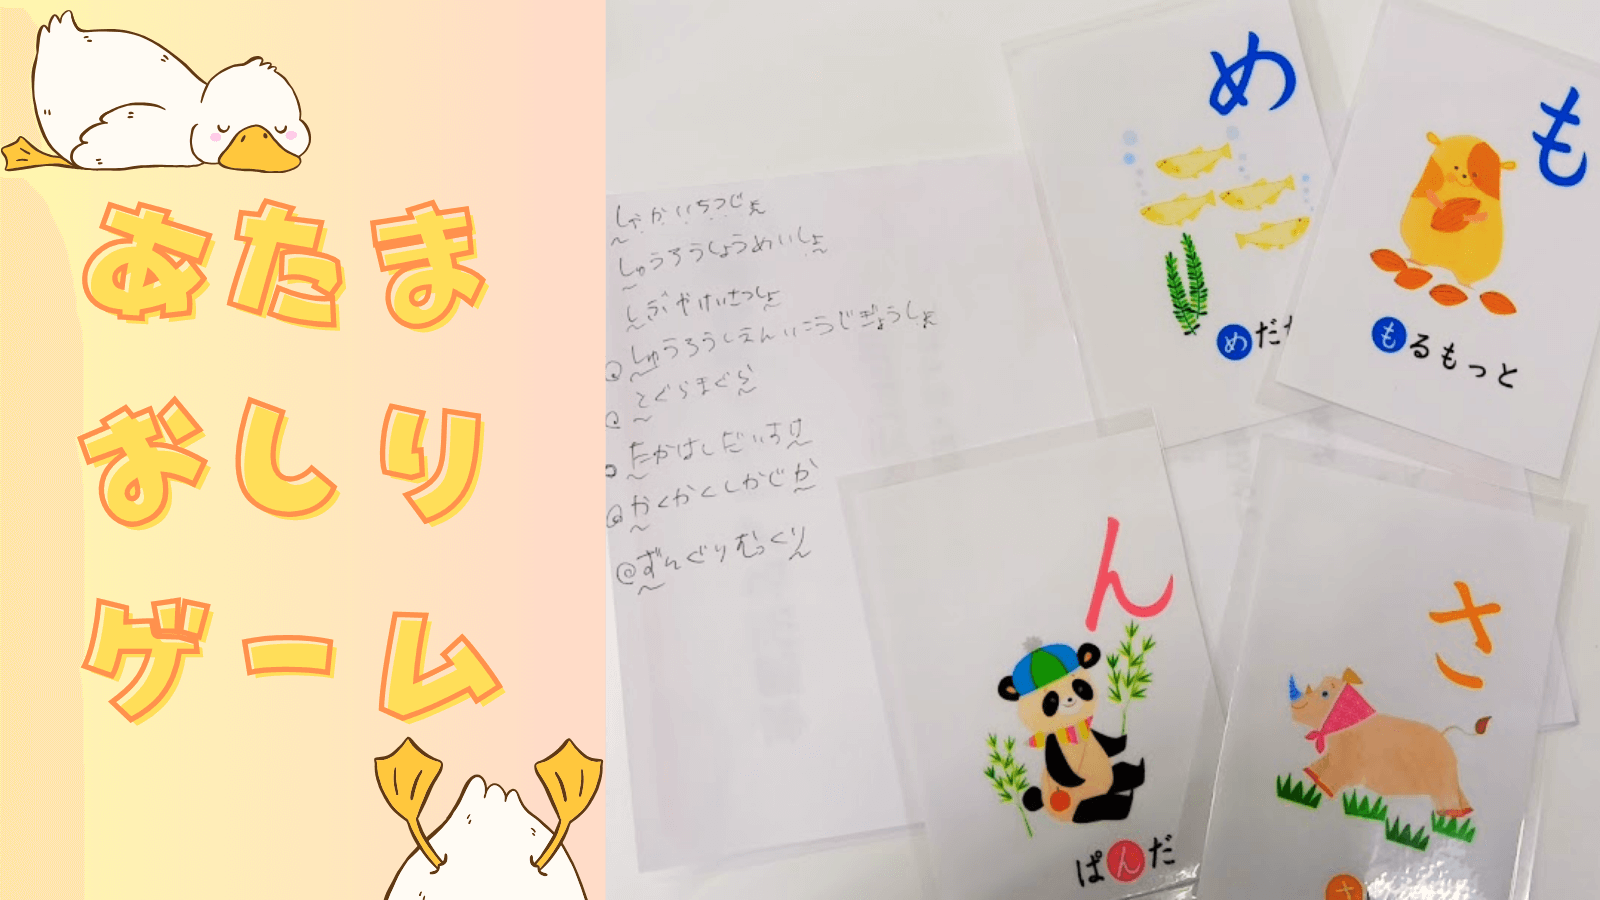 あたま
おしり
ゲーム
しゃかいちつじょ
しゅうろうしょうめいしょ
しぶやけいさつしょ
@しゅうろうしえんいこうじぎょうしょ
@とぐらまぐら
たかはしだいすけ
@かくかくしかじか
@ずんぐりむっくり
め
めだ
も
もるもっと
ん
ぱんだ
さ
さ